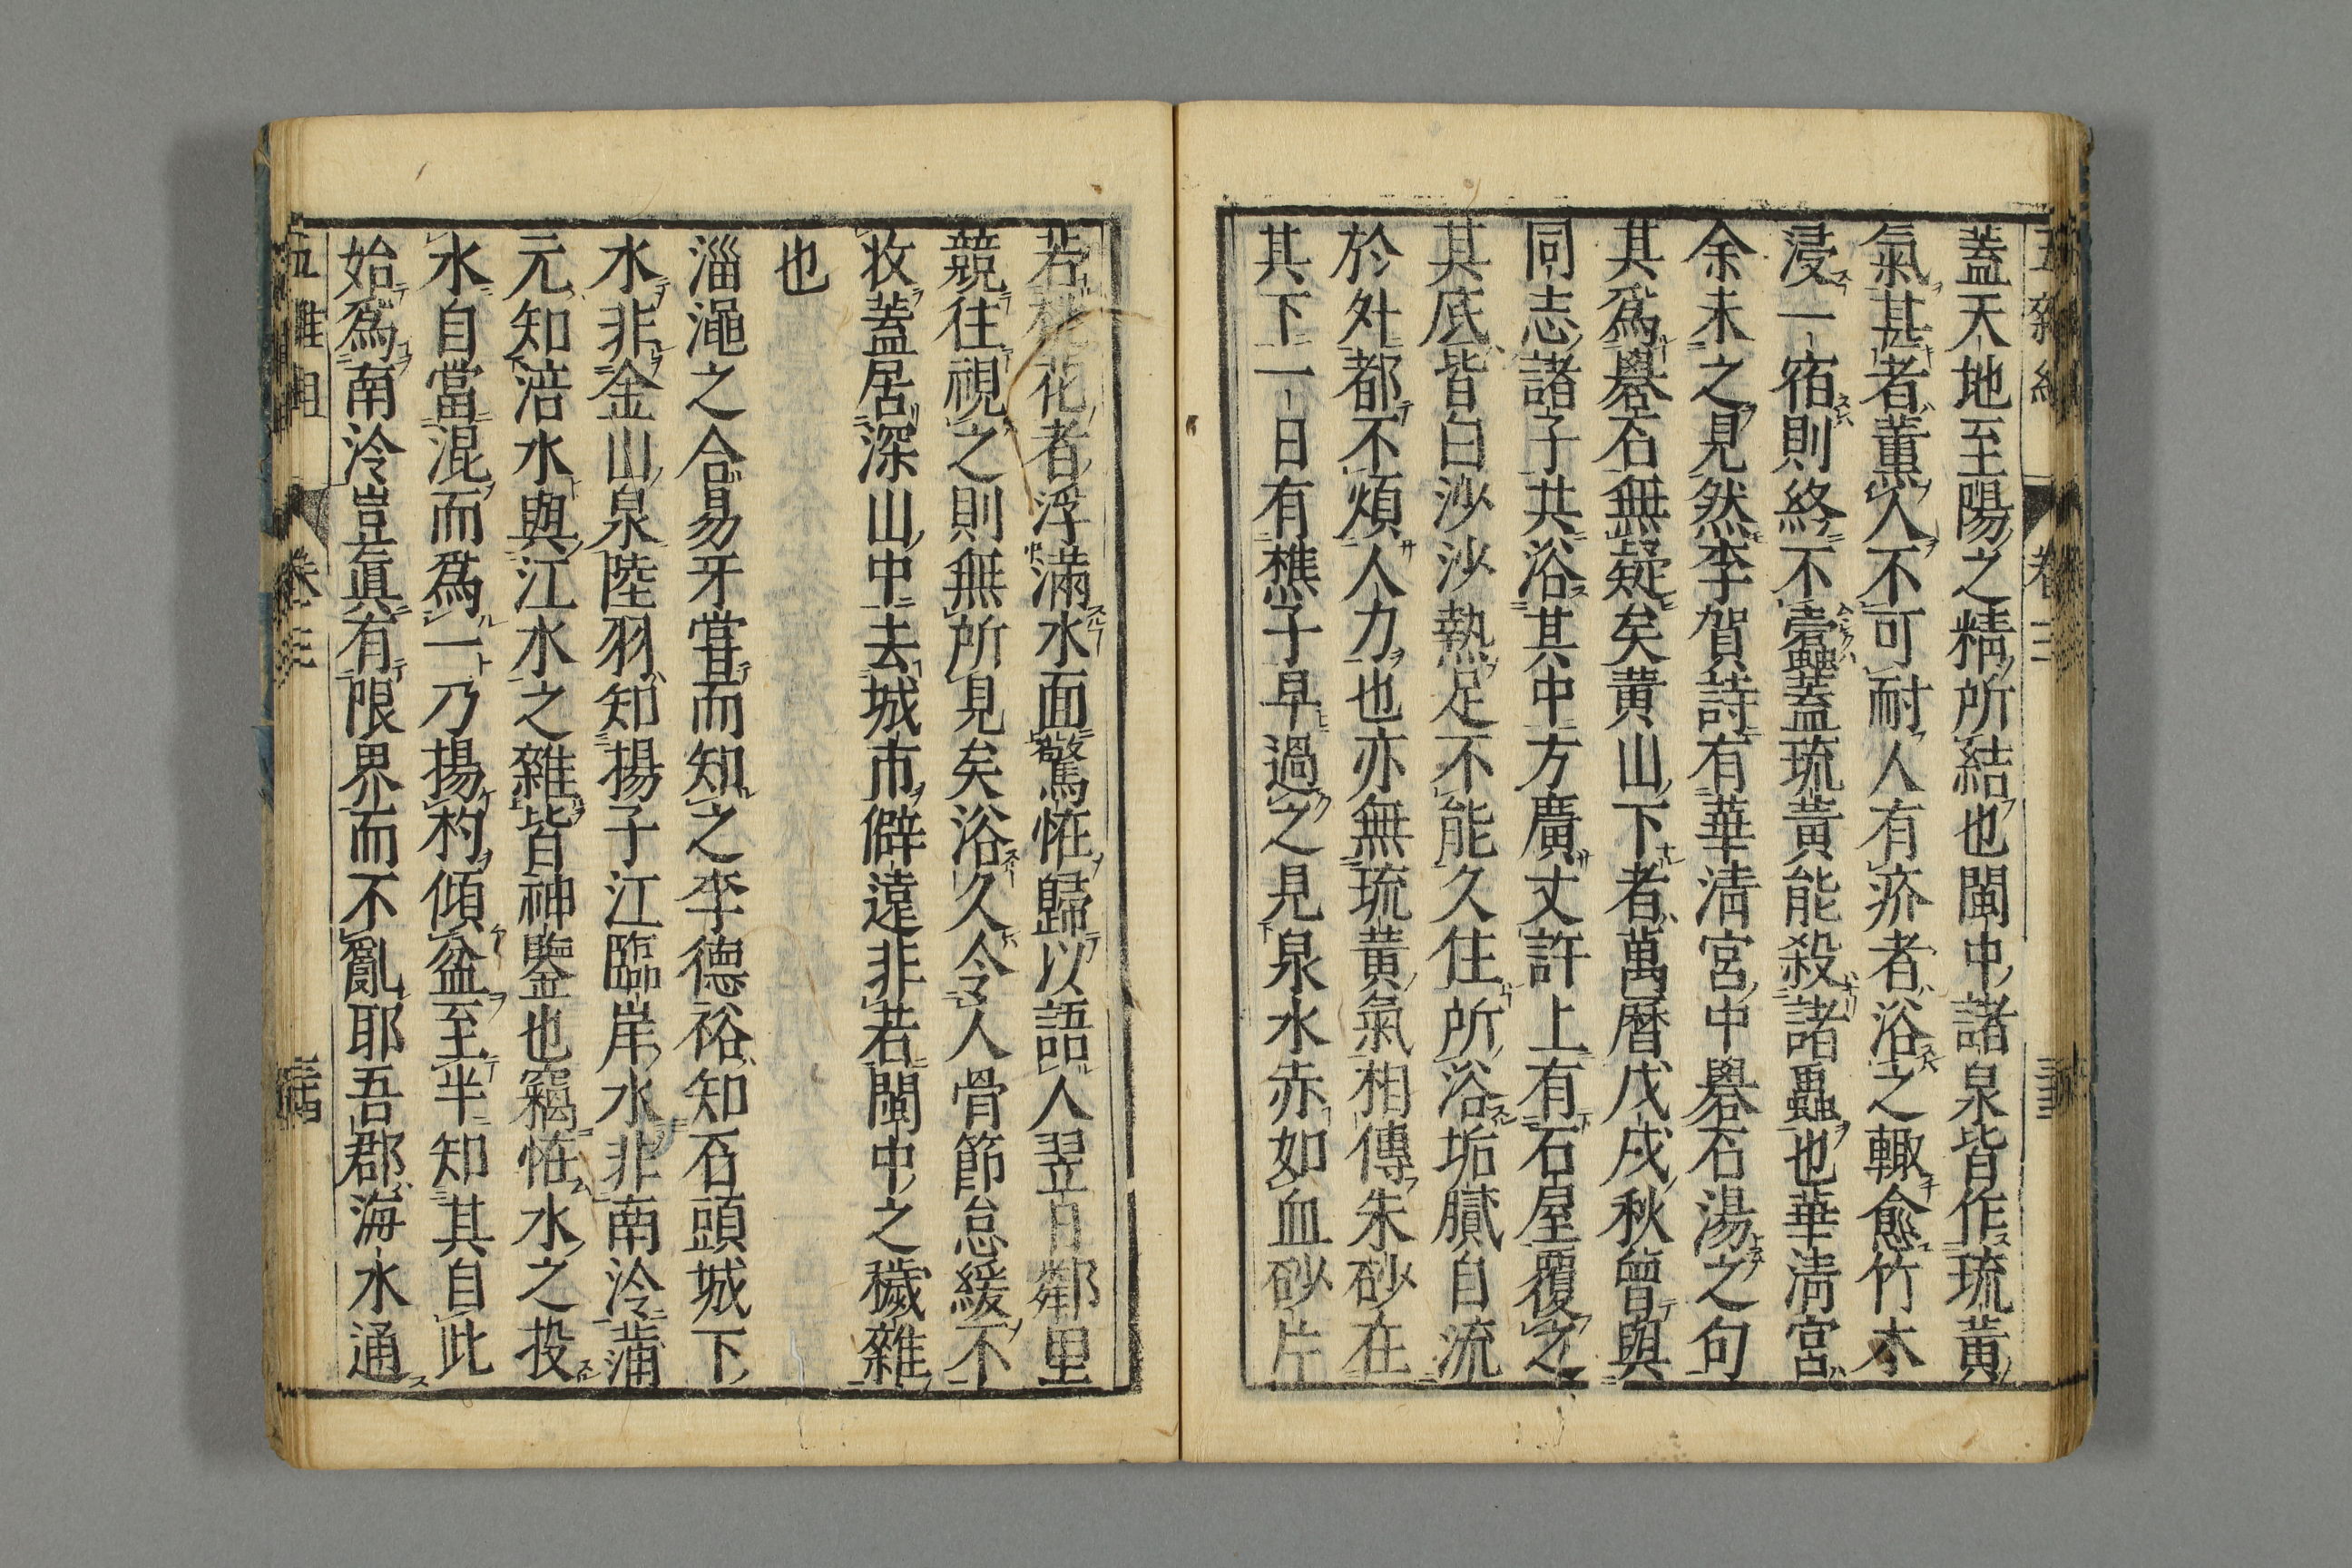 蓋天地至陽之精所結也閩中諸泉皆作琉黃
氣甚者薰人不可耐人有疥者浴之輙愈竹木
浸一宿則終不蠧蓋琉黃能殺諸蟲也華淸宮
余未之見然李賀詩有華淸宮中礜石湯之句
其爲礜石無疑矣黃山下者萬曆戊戌秋曾與
同志諸子共浴其中方廣丈許上有石屋覆之
其底皆白沙沙熱足不能久住所浴垢膩自流
於外都不煩人力也亦無琉黃氣相傳朱砂在
其下一日有樵子早過之見泉水赤如血砂片
若桃花者浮滿水面驚怪歸以語人翌日鄰里
競往視之則無所見矣浴久令人骨節怠緩不
收蓋居深山中去城市僻遠非若閩中之穢雜
也
淄澠之合易牙嘗而知之李德裕知石頭城下
水非金山泉陸羽知揚子江臨岸水非南泠蒲
元知涪水與江水之雜皆神鑒也竊怪水之投
水自當混而爲一乃揚杓傾盆至半知其自此
始爲南泠豈眞有限界而不亂耶吾郡海水通
五雜俎
卷三